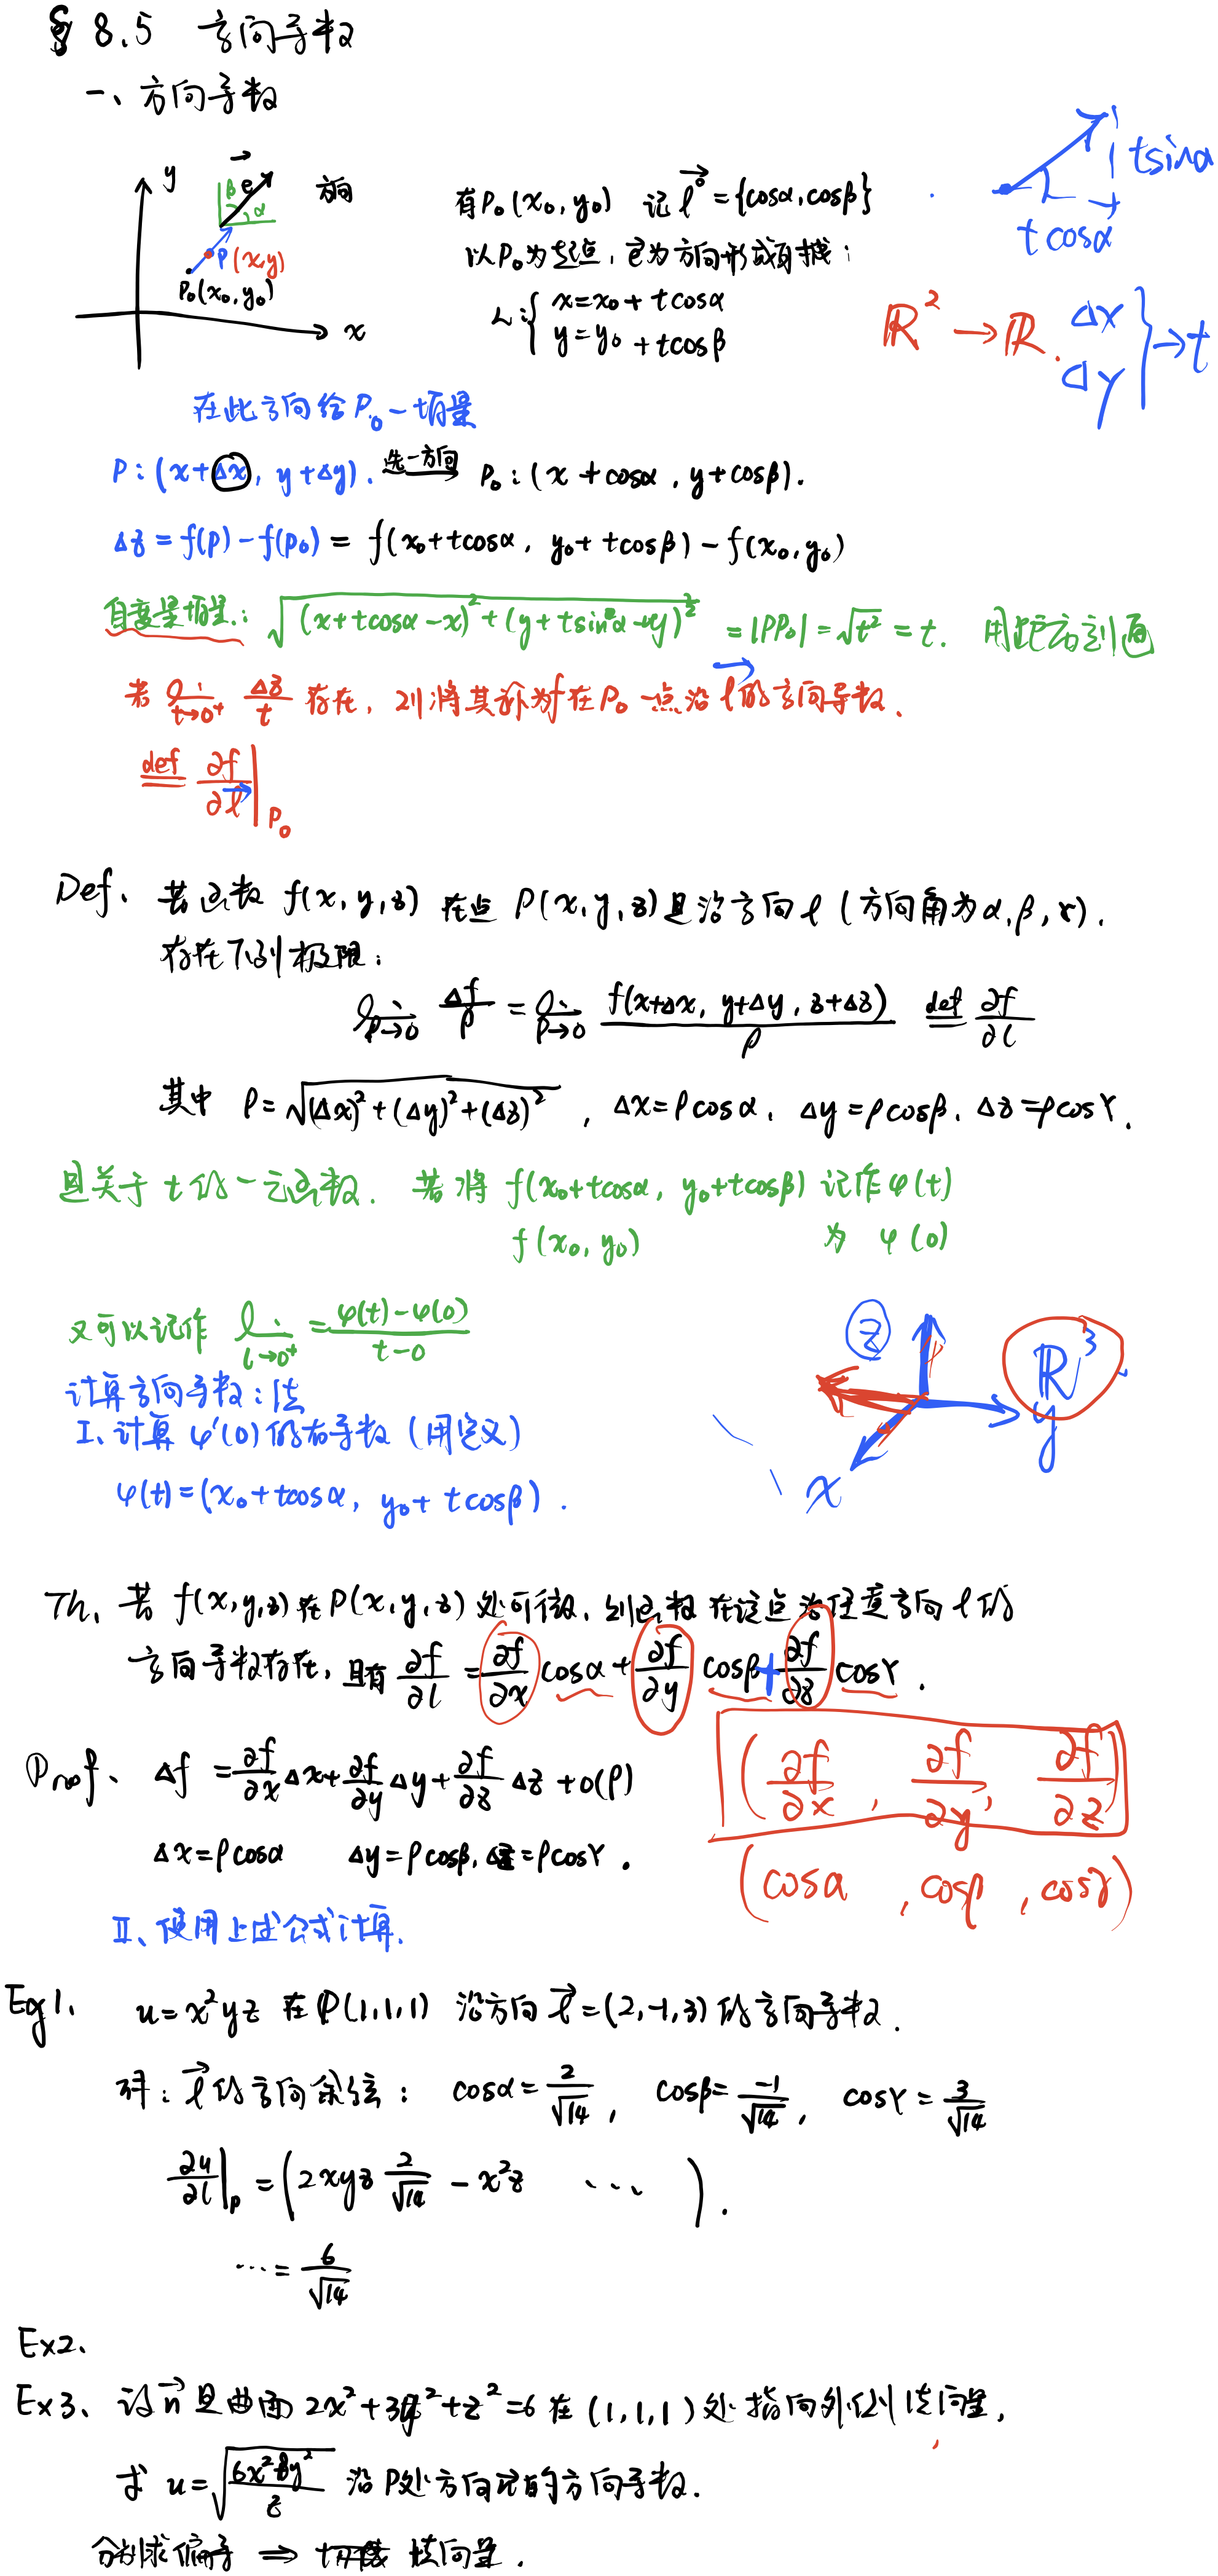 § 8.5 方向导数
一、方向导数
y
e
β
α
方向
P(x,y)
P₀(x₀,y₀)
x
有P₀(x₀,y₀) 记 l⃗⁰={cosα,cosβ}
以P₀为起点,e⃗为方向形成射线:
L:{ x=x₀+tcosα
y=y₀+tcosβ
tsinα
tcosα
ℝ²→ℝ.
Δx
Δy }→t
在此方向给P₀一增量
P:(x+Δx, y+Δy). 选一方向 P₀:(x+cosα, y+cosβ).
Δz=f(P)-f(P₀)= f(x₀+tcosα, y₀+tcosβ)-f(x₀,y₀)
自变量增量: √((x+tcosα-x)²+(y+tsinα-y)²) =|PP₀|=√t²=t. 用距离刻画
若 lim t→0⁺ Δz/t 存在, 则将其称为f在P₀一点沿l⃗的方向导数.
def ∂f/∂l⃗ |P₀
Def. 若函数 f(x,y,z) 在点 P(x,y,z)且沿方向l(方向角为α,β,γ).
存在下列极限:
lim ρ→0 Δf/ρ = lim ρ→0 f(x+Δx, y+Δy, z+Δz)/ρ def ∂f/∂l
其中 ρ=√((Δx)²+(Δy)²+(Δz)²), Δx=ρcosα, Δy=ρcosβ, Δz=ρcosγ.
是关于t的一元函数. 若将 f(x₀+tcosα, y₀+tcosβ) 记作φ(t)
f(x₀,y₀) 为 φ(0)
又可以记作 lim t→0⁺ = (φ(t)-φ(0))/(t-0)
z
ℝ³
y
x
计算方向导数:法
I、计算φ'(0)的右导数(用定义)
φ(t)=(x₀+tcosα, y₀+tcosβ).
Th. 若 f(x,y,z)在P(x,y,z)处可微,则函数在该点沿任意方向l的
方向导数存在,且有 ∂f/∂l = ∂f/∂x cosα + ∂f/∂y cosβ + ∂f/∂z cosγ.
Proof、 Δf = ∂f/∂x Δx + ∂f/∂y Δy + ∂f/∂z Δz + o(ρ)
Δx=ρcosα Δy=ρcosβ, Δz=ρcosγ.
(∂f/∂x, ∂f/∂y, ∂f/∂z)
(cosα, cosβ, cosγ)
II、使用上述公式计算.
Eg1. u=x²yz 在P(1,1,1) 沿方向 l⃗=(2,-1,3)的方向导数.
解: l⃗的方向余弦: cosα=2/√14, cosβ=-1/√14, cosγ=3/√14
∂u/∂l |p =(2xyz 2/√14 - x²z ⋯ ).
⋯=6/√14
Ex2、
Ex3、设n⃗是曲面2x²+3y²+z²=6在(1,1,1)处指向外侧法向量,
求 u=√(6x²+8y²)/z 沿P处方向n⃗的方向导数.
分别求偏导 ⟹ 法向量.